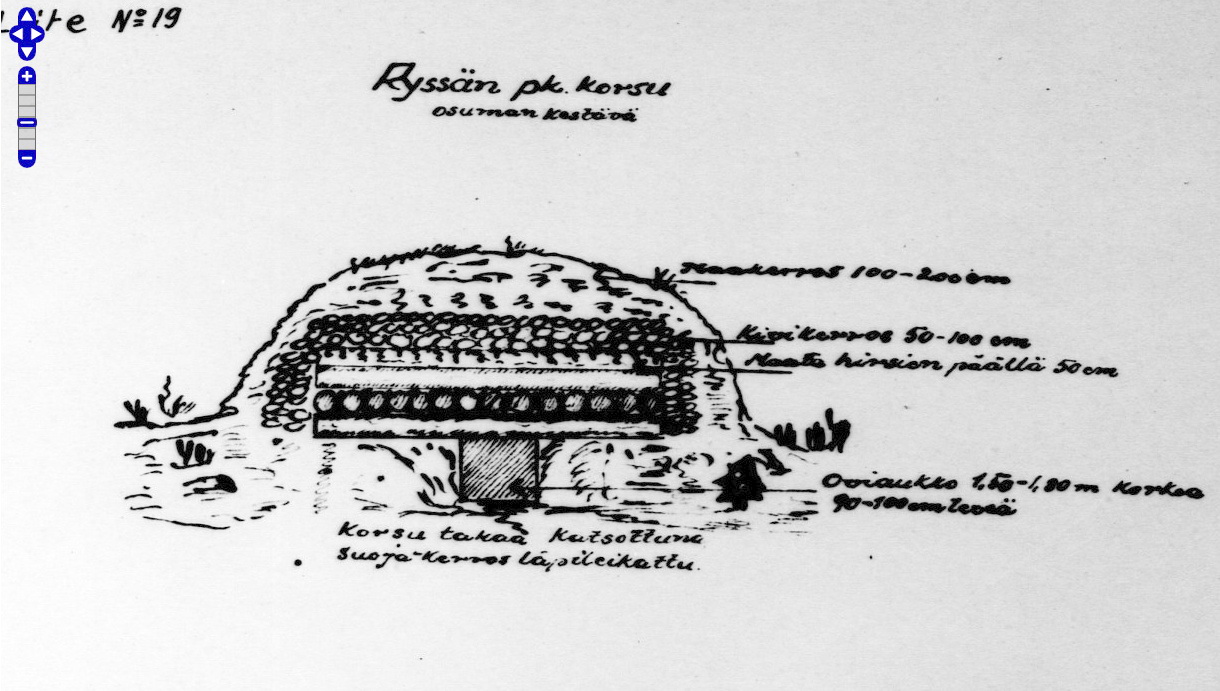 Liite № 19
Ryssän pk. korsu
osuman kestävä
Maakerros 100-200 cm
Kivikerros 50-100 cm
Maata hirsien päällä 50 cm
Oviaukko 1,50-1,80 m korkea
90-100 cm leveä
Korsu takaa katsottuna
suoja-kerros läpileikattu.